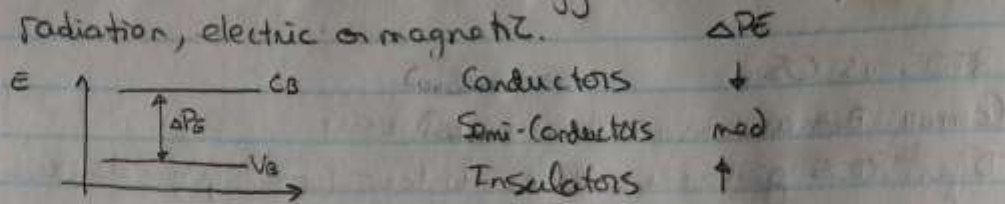 radiation, electric or magnetic. ΔPE
E CB Conductors ↓
ΔPE Semi-Conductors med
VB Insulators ↑